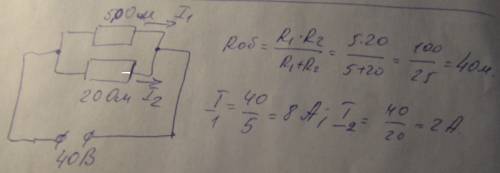 5,0 Ом I₁
20 Ом I₂
40В
Rоб = R₁·R₂ / R₁+R₂ = 5·20 / 5+20 = 100 / 25 = 4 Ом.
I₁ = 40 / 5 = 8 А; I₂ = 40 / 20 = 2 А